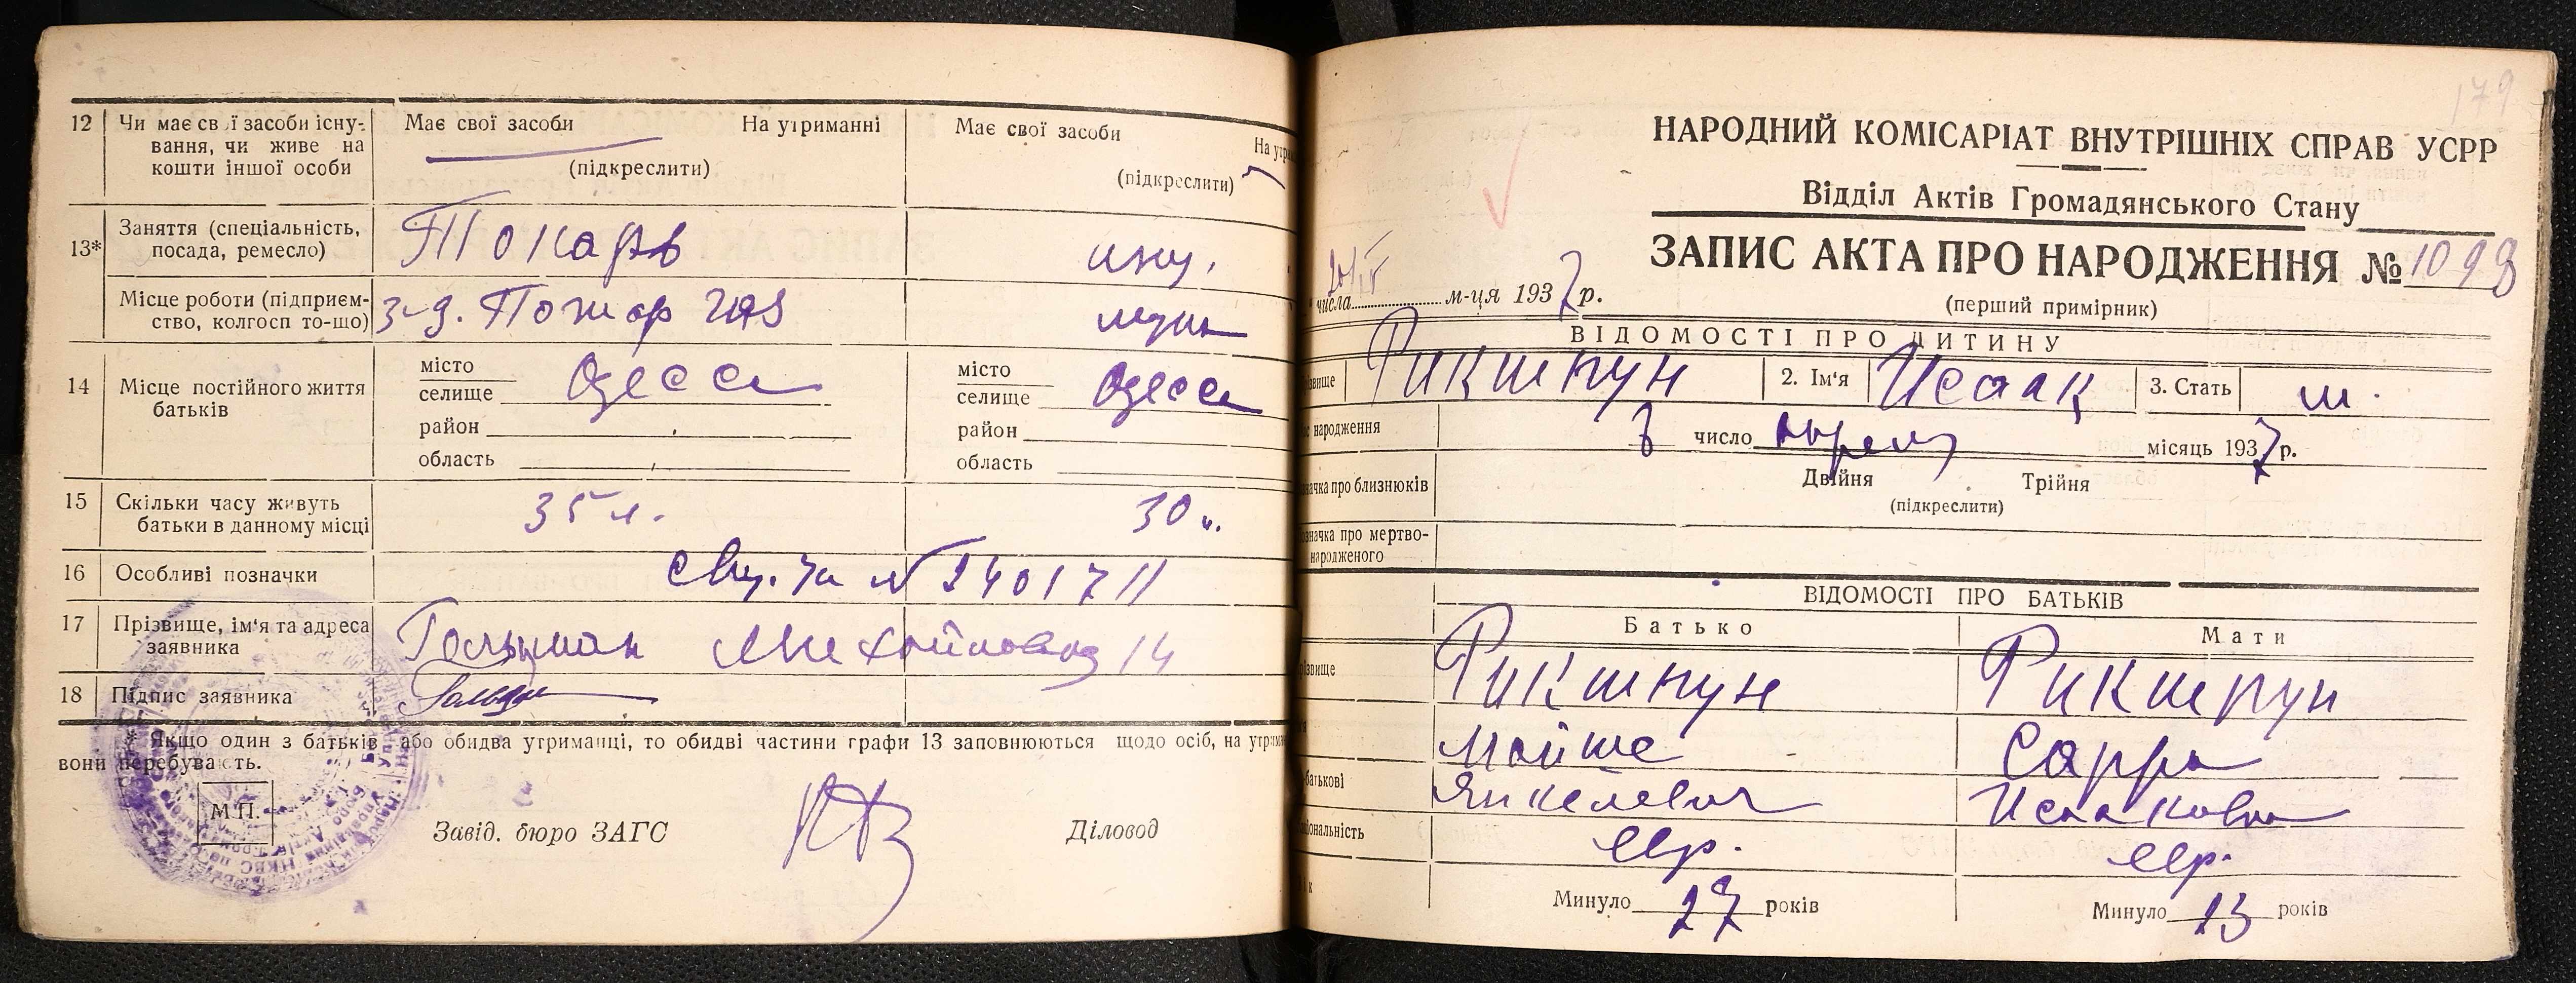 12 Чи має свої засоби існу-
вання, чи живе на
кошти іншої особи
Має свої засоби На утриманні
(підкреслити)
Має свої засоби
(підкреслити)
13* Заняття (спеціальність,
посада, ремесло)
Токарь
Місце роботи (підприєм-
ство, колгосп то-що)
14 Місце постійного життя
батьків
місто
селище Одесса
район
область
місто
селище Одесса
район
область
15 Скільки часу живуть
батьки в данному місці
35 л.
30 л.
16 Особливі позначки
№ 2401711
17 Прізвище, ім'я та адреса
заявника
Гольцман 14
18 Підпис заявника
* Якщо один з батьків або обидва утриманці, то обидві частини графи 13 заповнюються щодо осіб, на
вони перебувають.
М.П.
Завід. бюро ЗАГС
Діловод
179
НАРОДНИЙ КОМІСАРІАТ ВНУТРІШНІХ СПРАВ УСРР
Відділ Актів Громадянського Стану
ЗАПИС АКТА ПРО НАРОДЖЕННЯ № 1098
числа м-ця 1937 р.
(перший примірник)
ВІДОМОСТІ ПРО ДИТИНУ
Рикшпун 2. Ім'я Исаак 3. Стать м.
народження 3 число апреля місяць 1937 р.
про близнюків
Двійня Трійня
(підкреслити)
про мертво-
народженого
ВІДОМОСТІ ПРО БАТЬКІВ
Батько Мати
Рикшпун Рикшпун
Мойше Сарра
Янкелевич Исааковна
евр. евр.
Минуло 27 років
Минуло 23 років